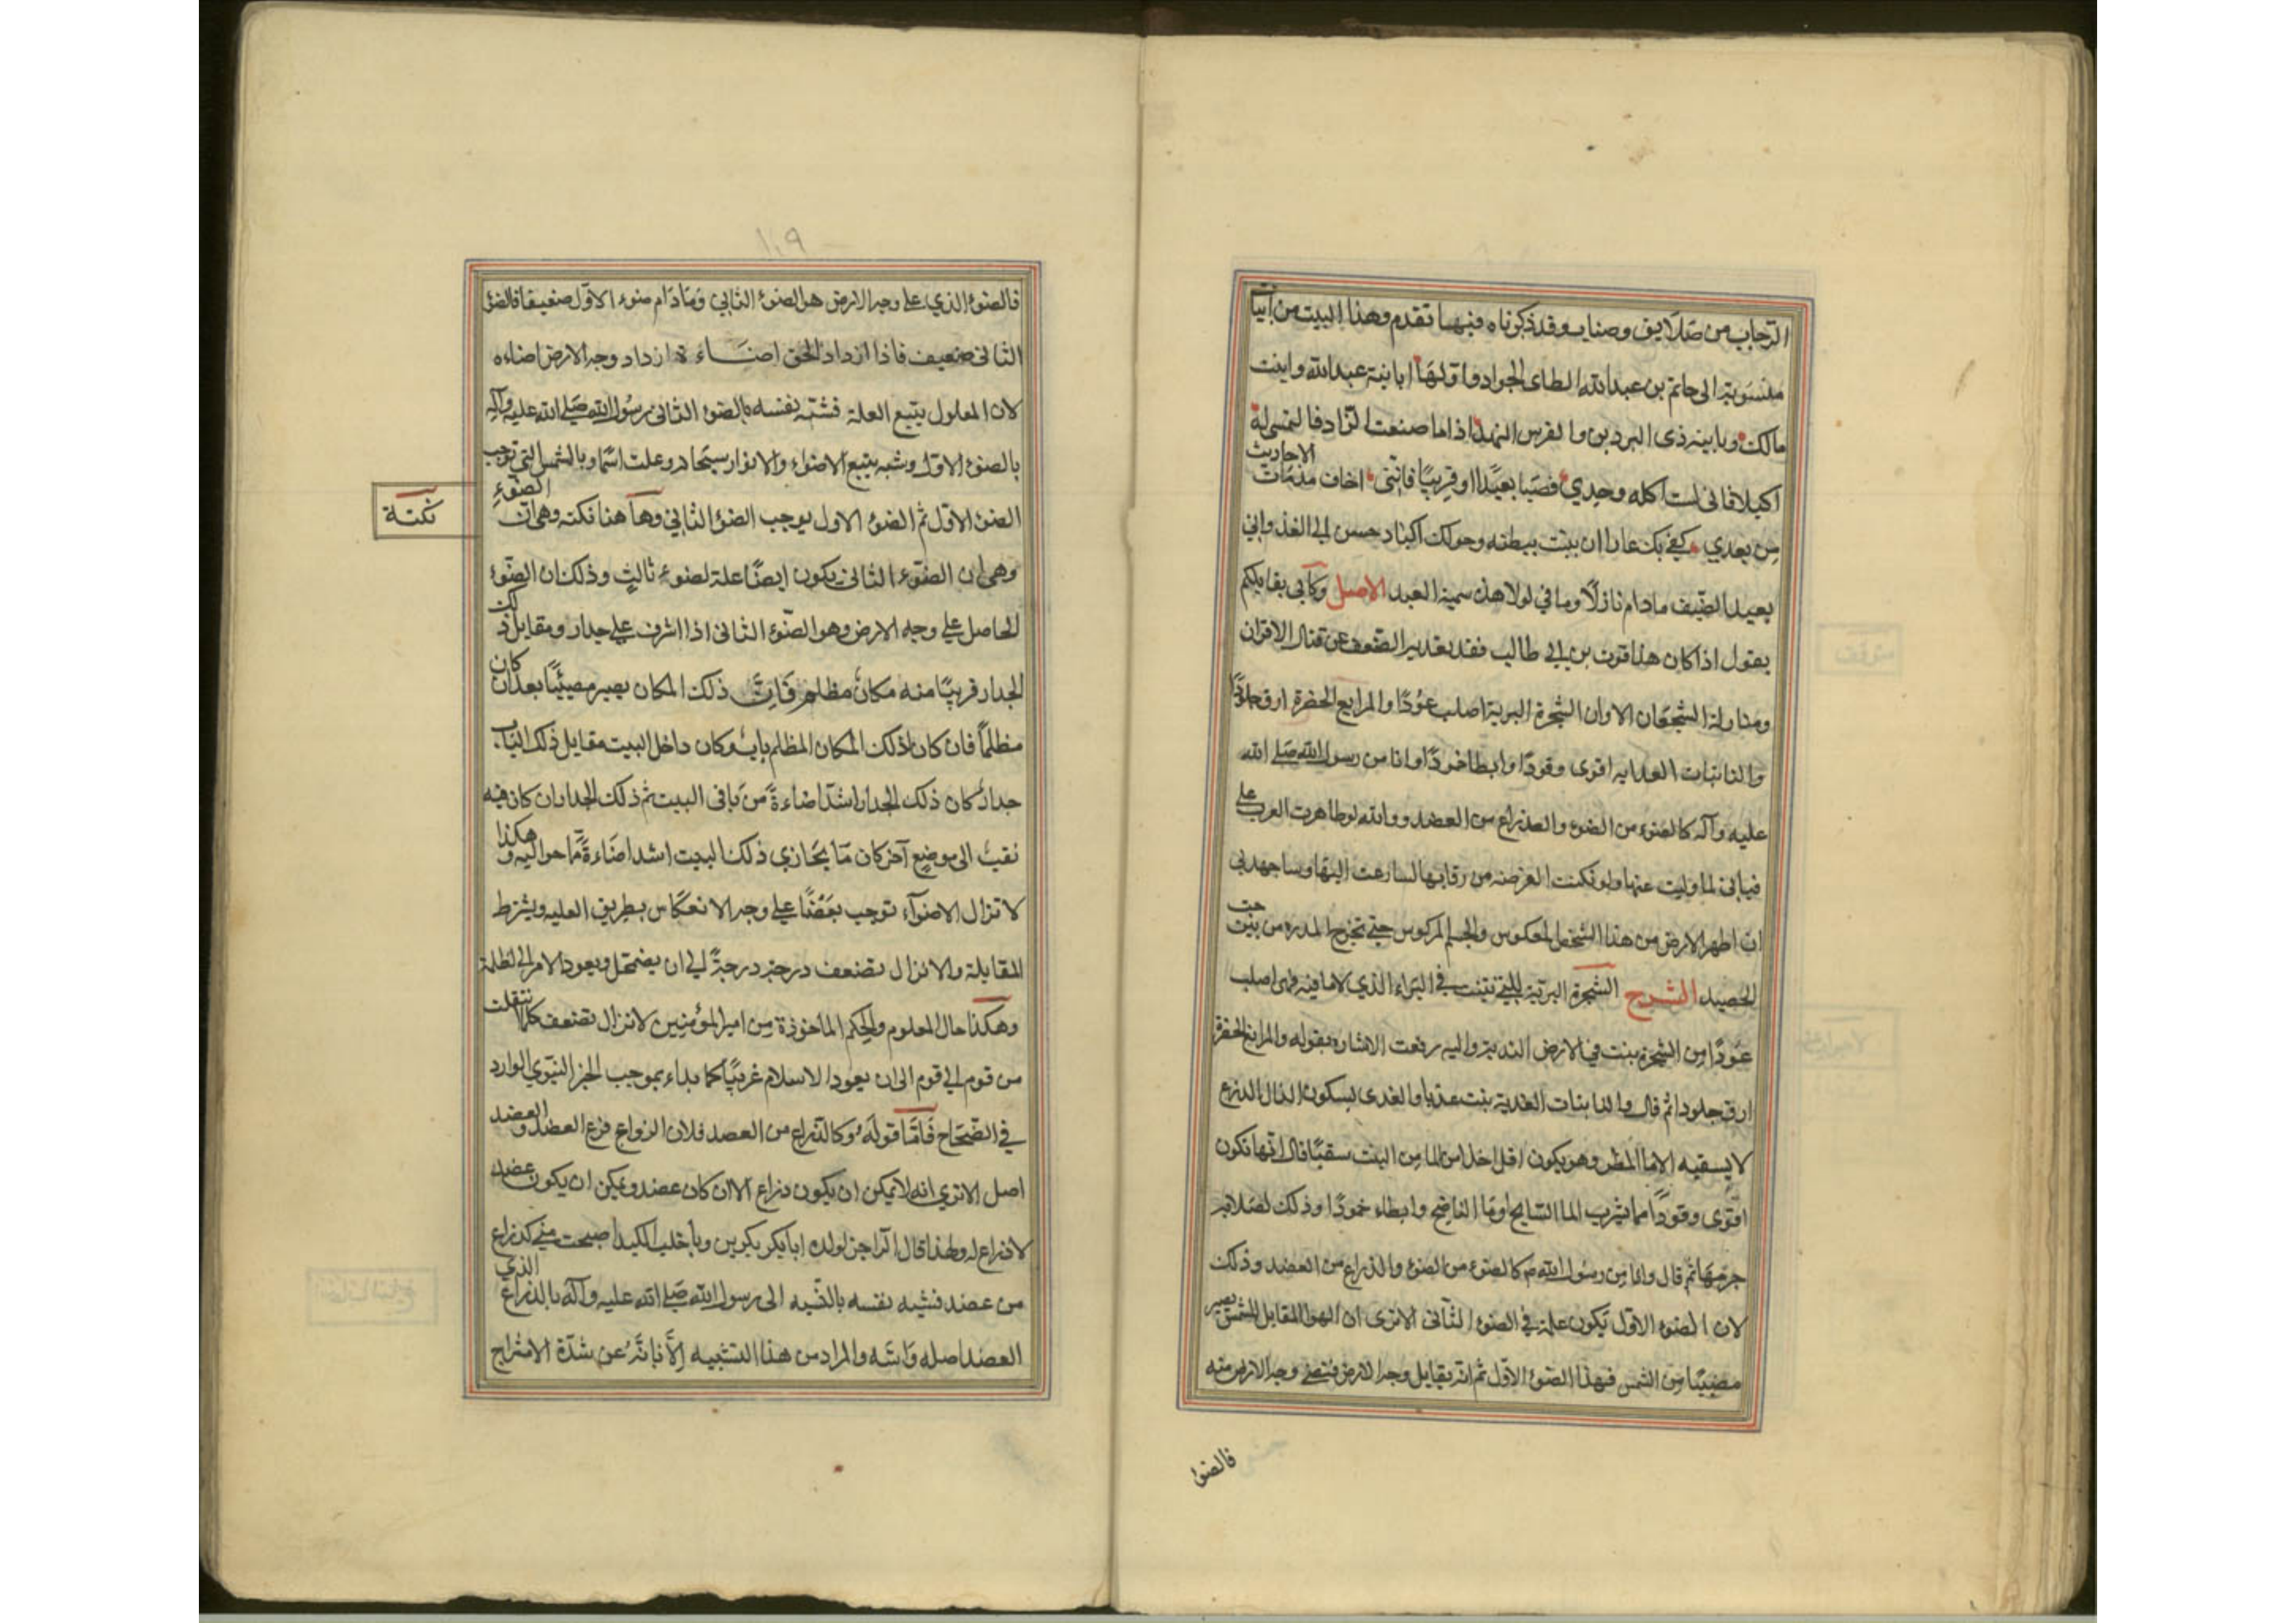 الرحاب من صلايق وصناب وقد ذكرناه فيما تقدم وهذا البيت من ابيات
منسوبة الى حاتم بن عبدالله الطاى الجواد واولها ايا بنة عبدالله وابنت
مالك ويابنه ذى البردين والفرس النهد اذا ما صنعت الزاد فالتمسى له
اكيلا فانى لست اكله وحدي قصيا بعيدا او قريبا فانني اخاف مذمات الاحاديث
من بعدي كفى بك عارا ان تبيت ببطنه وحولك اكباد تحن الى القد واني
لعبد الضيف مادام نازلا وما في لولا هذه شيمة العبد الاصل وكأني بقايلكم
يقول اذا كان هذا قوت بن ابي طالب فقد قعد به الضعف عن قتال الاقران
ومنازلة الشجعان الا وان الشجرة البرية اصلب عودا والمراتع الخضرة ارق جلودا
والنابتات العذيه اقوى وقودا وابطا خمودا وانا من رسول الله صلى الله
عليه وآله كالضوء من الضوء والذراع من العضد ووالله لو تظاهرت العرب على
قتالى لما وليت عنها ولو امكنت الفرصه من رقابها لسارعت اليها وساجهد في
ان اطهر الارض من هذا الشخص المعكوس والجسم المركوس حتى تخرج المدره من بين حب
الحصيد الشرح الشجرة البرية التي تنبت في البراء الذي لا ما فيه فهى اصلب
عودا من الشجرة تنبت في الارض الندية واليه وقعت الاشارة بقوله والمراتع الخضرة
ارق جلودا ثم قال والنابتات العذية تنبت عذيا والعذى بسكون الذال الذرع
لا يسقيه الا ما المطر وهو يكون اقل اخذا من الما من النبت سقيا قال انها تكون
اقوى وقودا مما يشرب الما السايح او ما الناضح وابطاء خمودا وذلك لصلابة
جرمها ثم قال وانا من رسول الله ص كالضوء من الضوء والذراع من العضد وذلك
لان الضوء الاول يكون علة في الضوء الثاني الا ترى ان الهوا المقابل للشمس يصير
مضيئا من الشمس فهذا الضوء الاول ثم انه يقابل وجه الارض فيضئ وجه الارض منه
فالضوء
١٠٩
فالضوء الذي على وجه الارض هو الضوء الثاني وما دام ضوء الاول ضعيفا فالضوء
الثانى ضعيف فاذا ازداد الجو اضاءة ازداد وجه الارض اضاءه
لان المعلول يتبع العلة فشبه نفسه بالضوء الثانى ورسول الله صلى الله عليه وآله
بالضوء الاول وشبه منبع الاضواء والانوار سبحانه وعلت اسماؤه بالشمس التى توجب
الضوء الاول ثم الضوء الاول يوجب الضوء الثاني وهاهنا نكته وهى ان الضوء
نكتة
وهى ان الضوء الثانى يكون ايضا علة لضوء ثالث وذلك ان الضوء
الحاصل على وجه الارض وهو الضوء الثانى اذا اشرف على جدار ومقابل ذلك
الجدار قريبا منه مكان مظلم فان ذلك المكان يصير مضيئا بعد ان كان
مظلما فان كان لذلك المكان المظلم باب وكان داخل البيت مقابل ذلك الباب
جدار كان ذلك الجدار اشد اضاءة من باقى البيت ثم ذلك الجدار ان كان فيه
نقب الى موضع آخر كان ما يحاذي ذلك البيت اشد اضاءة مما حواليه وهكذا
لا تزال الاضواء توجب بعضا على وجه الانعكاس بطريق العليه وبشرط
المقابلة والا تزال تضعف درجة درجة الى ان يضمحل ويعود الامر الى الظلمة
وهكذا حال المعلوم والحكم الماخوذة من امير المؤمنين لا تزال تضعف كلما انتقلت
من قوم الى قوم الى ان يعود الاسلام غريبا كما بداء بموجب الخبر النبوي الوارد
في الصحاح فاما قوله وكالذراع من العضد فلان الذراع فرع العضد والعضد
اصل الا تري انه لا يمكن ان يكون ذراع الا ان كان عضد ويمكن ان يكون عضد
لا ذراع له ولهذا قال الراجز لولده يا بكر بكرين ويا خلب الكبد اصبحت مني كذراع
من عضد فشبه نفسه بالنسبه الى رسول الله صلى الله عليه وآله بالذراع الذي
العضد اصله واسه والمراد من هذا التشبيه الابانة عن شدة الامتزاج